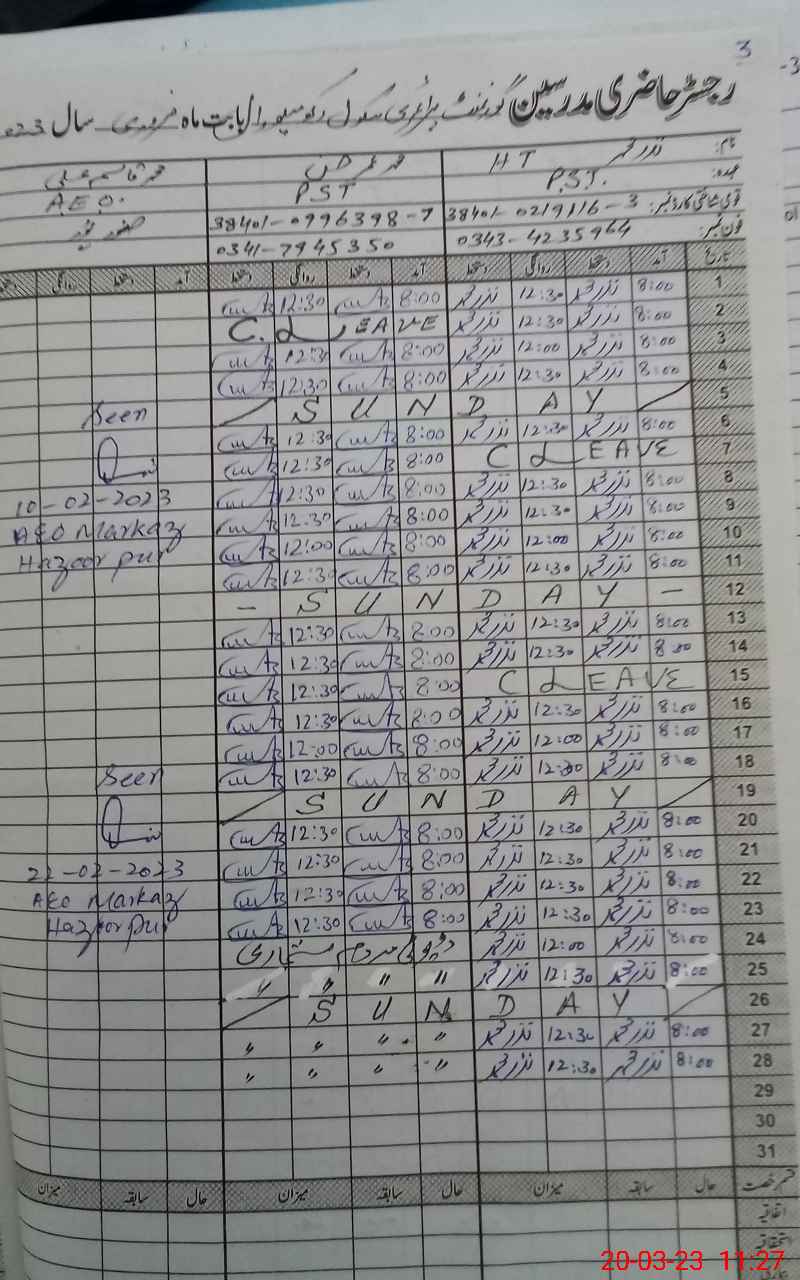 3
رجسٹر حاضری مدرسین گورنمنٹ پرائمری سکول بابت ماہ فروری سال 023
نام: نذر محمد HT محمد قاسم علی
عہدہ: P.S.T. PST A.E.O.
قومی شناختی کارڈ نمبر: 38401-0219116-3 38401-0996398-7 حضور پور
فون نمبر: 0343-4235964 0341-7945350
تاریخ آمد دستخط روانگی دستخط آمد دستخط روانگی دستخط آمد دستخط روانگی دستخط
1 8:00 نذر محمد 12:30 نذر محمد 8:00 12:30
2 8:00 نذر محمد 12:30 نذر محمد C. LEAVE
3 8:00 نذر محمد 12:00 نذر محمد 8:00 12:30
4 8:00 نذر محمد 12:30 نذر محمد 8:00 12:30
5 SUNDAY
Seen
6 8:00 نذر محمد 12:30 نذر محمد 8:00 12:30
7 C LEAVE 8:00 12:30
8 8:00 نذر محمد 12:30 نذر محمد 8:00 12:30
10-02-2023
9 8:00 نذر محمد 12:30 نذر محمد 8:00 12:30
AEO Markaz
10 8:00 نذر محمد 12:00 نذر محمد 8:00 12:00
Hazoor pur
11 8:00 نذر محمد 12:30 نذر محمد 8:00 12:30
12 - SUNDAY -
13 8:00 نذر محمد 12:30 نذر محمد 8:00 12:30
14 8:00 نذر محمد 12:30 نذر محمد 8:00 12:30
15 C LEAVE 8:00 12:30
16 8:00 نذر محمد 12:30 نذر محمد 8:00 12:30
17 8:00 نذر محمد 12:00 نذر محمد 8:00 12:00
18 8:00 نذر محمد 12:30 نذر محمد 8:00 12:30
Seen
19 SUNDAY
20 8:00 نذر محمد 12:30 نذر محمد 8:00 12:30
21 8:00 نذر محمد 12:30 نذر محمد 8:00 12:30
22-02-2023
22 8:00 نذر محمد 12:30 نذر محمد 8:00 12:30
AEO Markaz
23 8:00 نذر محمد 12:30 نذر محمد 8:00 12:30
Hazoor pur
24 8:00 نذر محمد 12:00 نذر محمد ڈیوٹی مردم شماری
25 8:00 نذر محمد 12:30 نذر محمد " " " "
26 SUNDAY
27 8:00 نذر محمد 12:30 نذر محمد " " " "
28 8:00 نذر محمد 12:30 نذر محمد " " " "
29
30
31
قسم رخصت حال سابقہ میزان حال سابقہ میزان حال سابقہ میزان
اتفاقیہ
استحقاقیہ
20-03-23 11:27